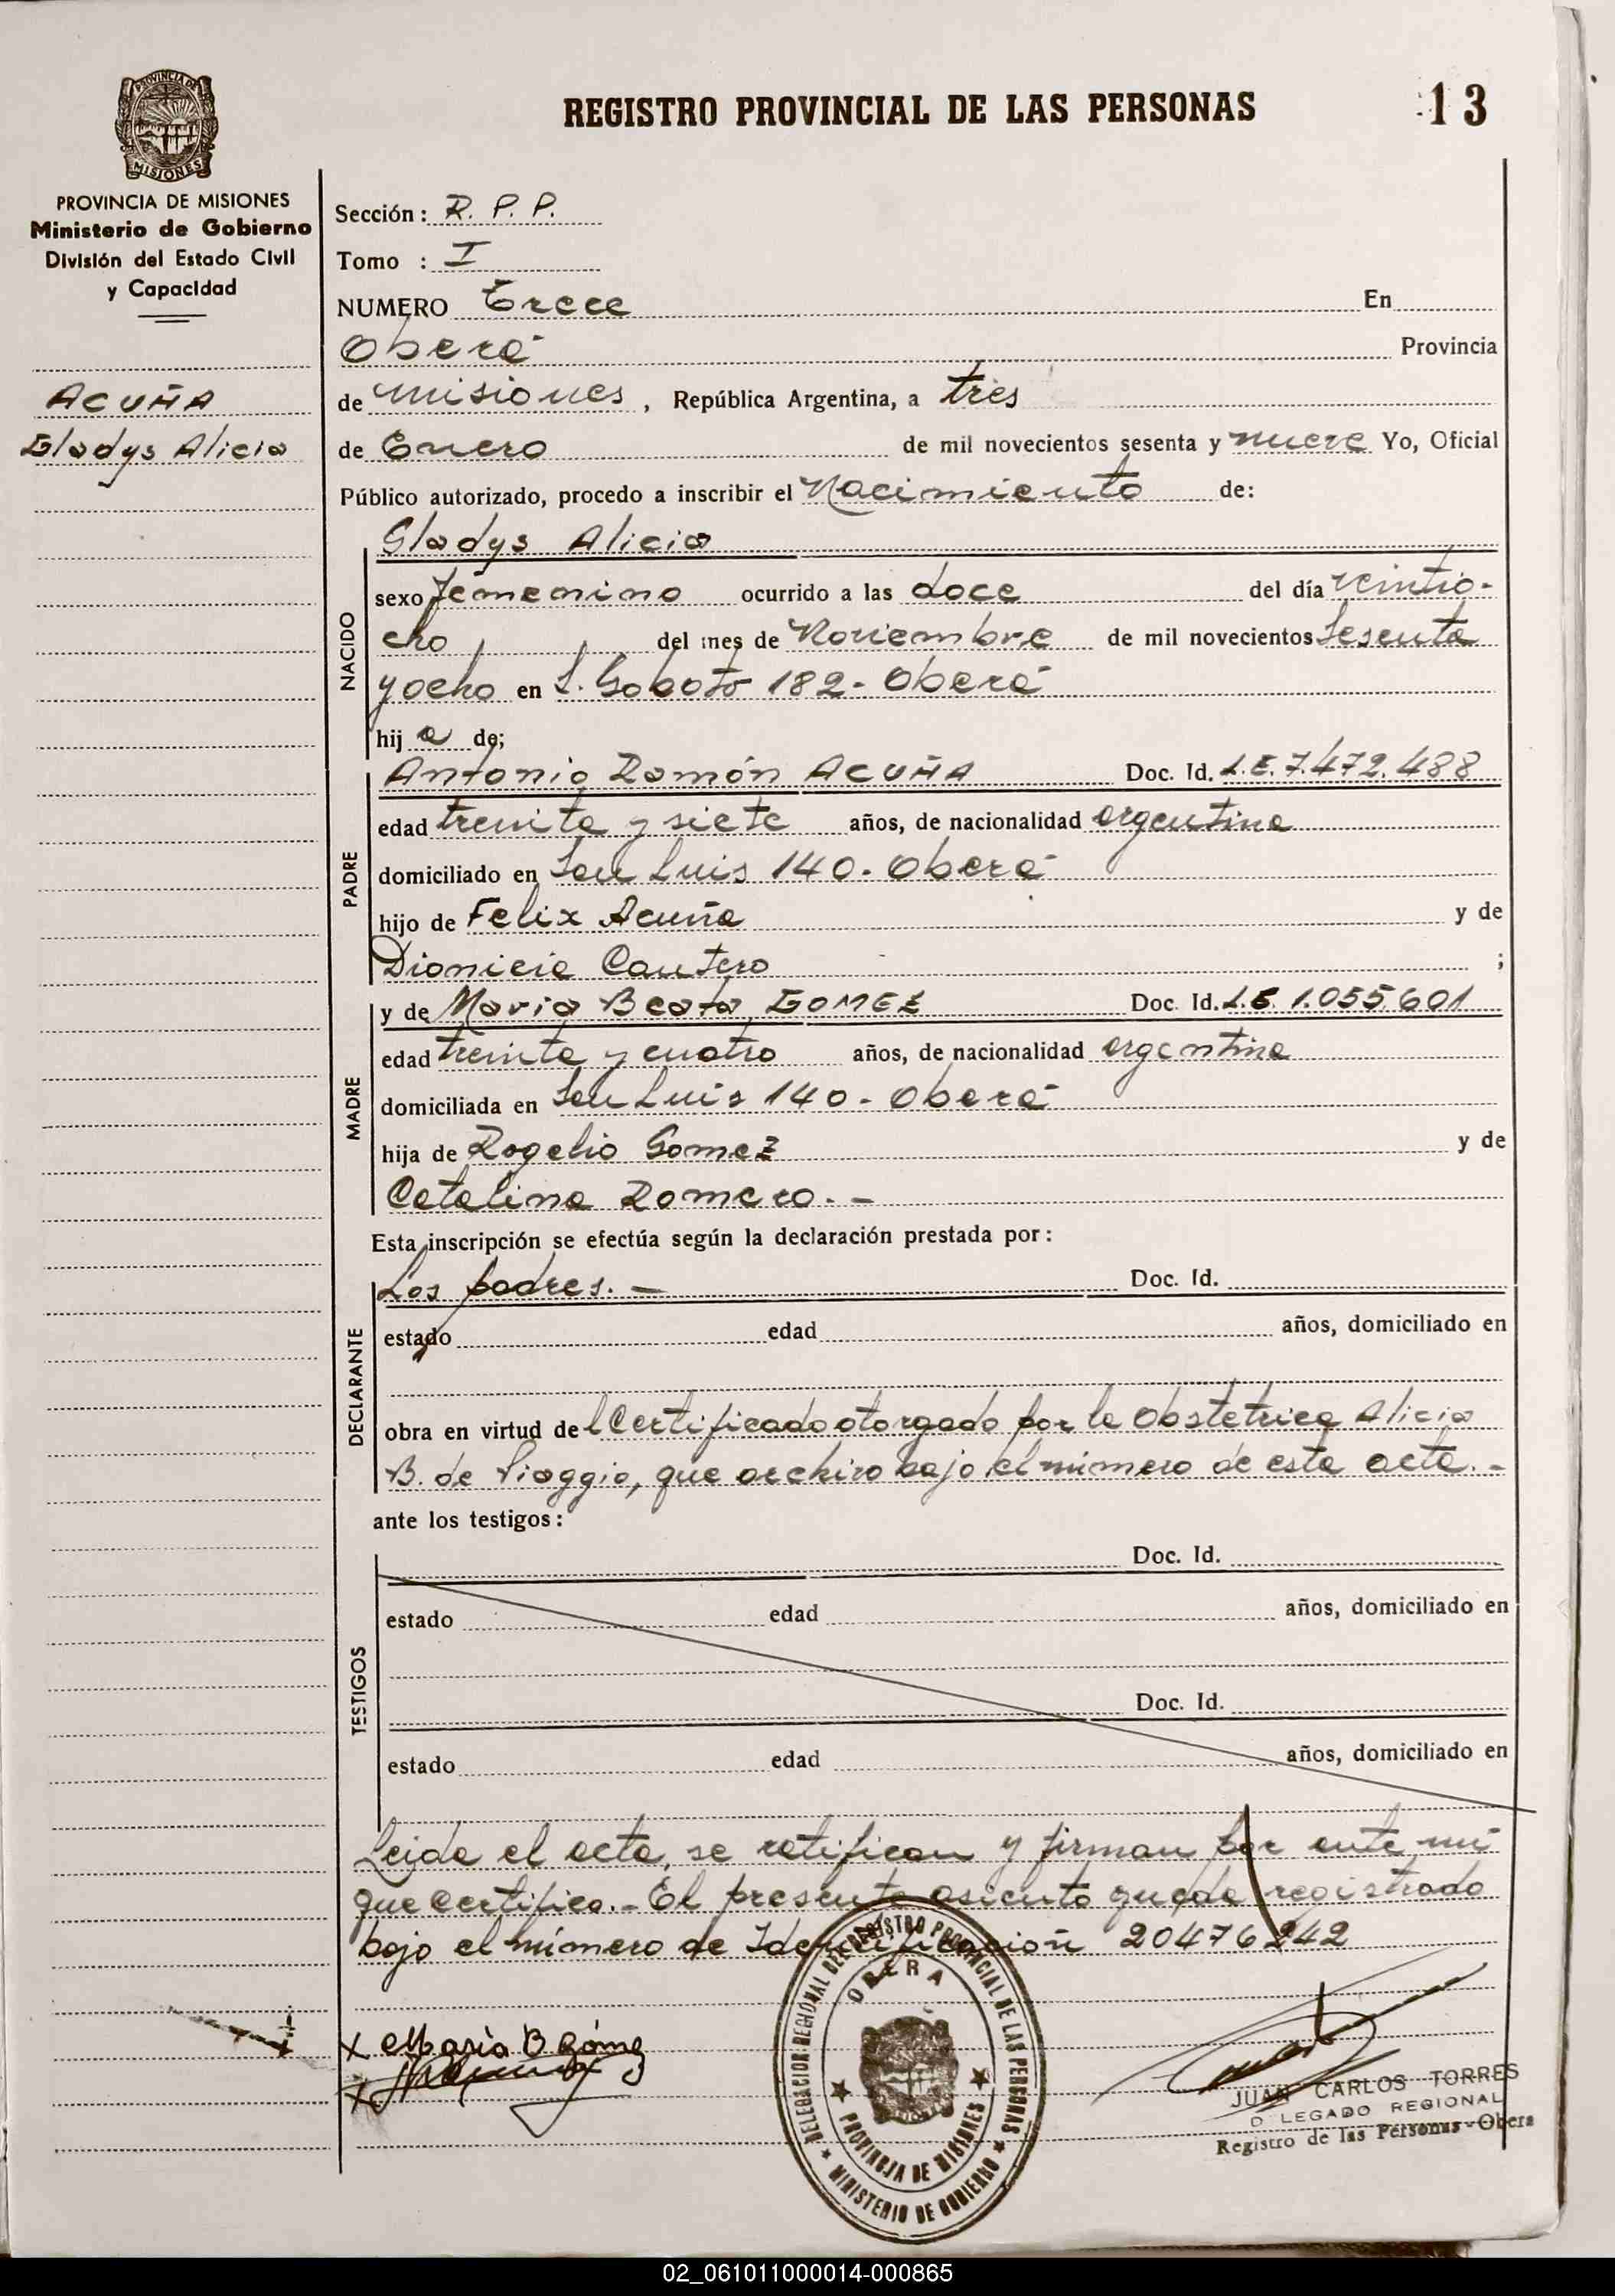 REGISTRO PROVINCIAL DE LAS PERSONAS
13
PROVINCIA DE
MISIONES
PROVINCIA DE MISIONES
Ministerio de Gobierno
División del Estado Civil
y Capacidad
ACUÑA
Gladys Alicia
Sección: R. P. P.
Tomo : I
NUMERO Trece En
Oberá Provincia
de Misiones, República Argentina, a tres
de Enero de mil novecientos sesenta y nueve Yo, Oficial
Público autorizado, procedo a inscribir el Nacimiento de:
NACIDO
Gladys Alicia
sexo femenino ocurrido a las doce del día veintio-
cho del mes de Noviembre de mil novecientos sesenta
y ocho en S. Gaboto 182 - Oberá
hij a de;
PADRE
Antonio Ramón ACUÑA Doc. Id. L.E. 7.472.488
edad treinta y siete años, de nacionalidad argentina
domiciliado en San Luis 140 - Oberá
hijo de Felix Acuña y de
Dionicia Cantero ;
MADRE
y de Maria Beata GOMEZ Doc. Id. L.C. 1.055.601
edad treinta y cuatro años, de nacionalidad argentina
domiciliada en San Luis 140 - Oberá
hija de Rogelio Gomez y de
Catalina Romero. -
Esta inscripción se efectúa según la declaración prestada por:
DECLARANTE
Los padres. - Doc. Id.
estado edad años, domiciliado en
obra en virtud del Certificado otorgado por la obstetrica Alicia
B. de Viaggio, que archivo bajo el número de esta acta. -
ante los testigos:
TESTIGOS
Doc. Id.
estado edad años, domiciliado en
Doc. Id.
estado edad años, domiciliado en
Leida el acta, se ratifican y firman por ante mi
que certifico. - El presente asiento queda registrado
bajo el número de Identificación 20476242
x Maria B Gómez
x
DELEGACION REGIONAL DEL REGISTRO PROVINCIAL DE LAS PERSONAS
OBERA
PROVINCIA DE MISIONES
MINISTERIO DE GOBIERNO
JUAN CARLOS TORRES
D LEGADO REGIONAL
Registro de las Personas - Obera
02_061011000014-000865